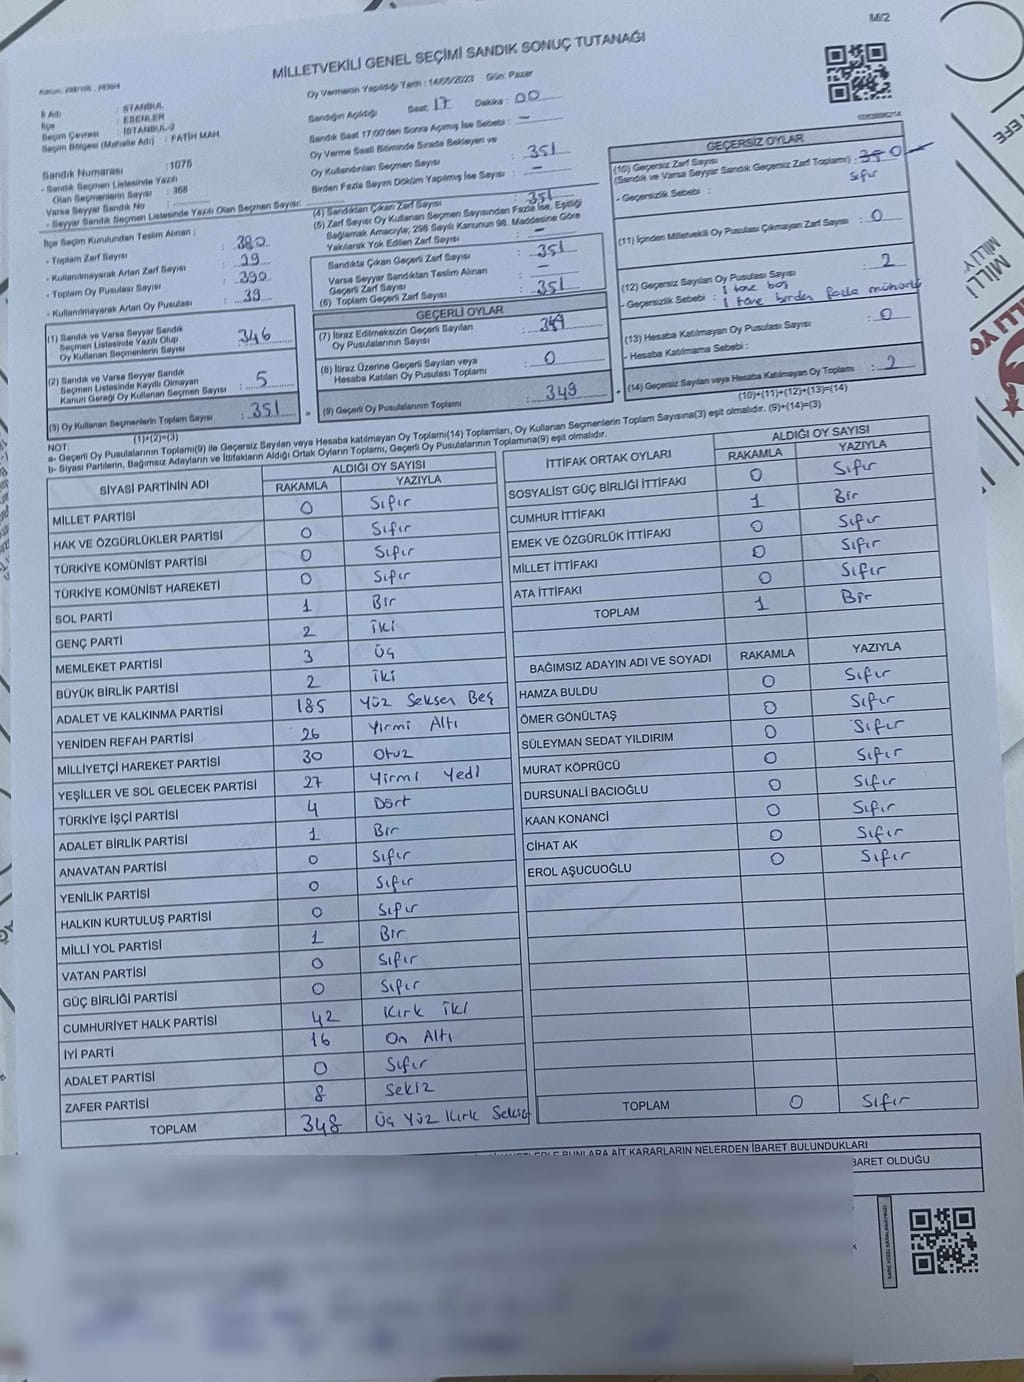 M/2
MİLLETVEKİLİ GENEL SEÇİMİ SANDIK SONUÇ TUTANAĞI
Oy Vermenin Yapıldığı Tarih : 14/05/2023 Gün: Pazar
İl Adı : İSTANBUL
İlçe : ESENLER
Seçim Çevresi : İSTANBUL-2
Seçim Bölgesi (Mahalle Adı) : FATİH MAH.
Sandık Numarası :1076
- Sandık Seçmen Listesinde Yazılı
Olan Seçmenlerin Sayısı : 368
Varsa Seyyar Sandık No :
- Seyyar Sandık Seçmen Listesinde Yazılı Olan Seçmen Sayısı:
Sandığın Açıldığı Saat: 17 Dakika : 00
Sandık Saat 17:00'den Sonra Açılmış İse Sebebi : -
Oy Verme Saati Bitiminde Sırada Bekleyen ve
Oy Kullandırılan Seçmen Sayısı : 351
Birden Fazla Sayım Döküm Yapılmış İse Sayısı : -
İlçe Seçim Kurulundan Teslim Alınan ;
- Toplam Zarf Sayısı : 380
- Kullanılmayarak Artan Zarf Sayısı : 29
- Toplam Oy Pusulası Sayısı : 390
- Kullanılmayarak Artan Oy Pusulası : 39
(1) Sandık ve Varsa Seyyar Sandık
Seçmen Listesinde Yazılı Olup
Oy Kullanan Seçmenlerin Sayısı 346
(2) Sandık ve Varsa Seyyar Sandık
Seçmen Listesinde Kayıtlı Olmayan
Kanun Gereği Oy Kullanan Seçmen Sayısı : 5
(3) Oy Kullanan Seçmenlerin Toplam Sayısı : 351
(1)+(2)=(3)
(4) Sandıktan Çıkan Zarf Sayısı : 351
(5) Zarf Sayısı Oy Kullanan Seçmen Sayısından Fazla İse, Eşitliği
Sağlamak Amacıyla, 298 Sayılı Kanunun 98. Maddesine Göre
Yakılarak Yok Edilen Zarf Sayısı : -
Sandıkta Çıkan Geçerli Zarf Sayısı : 351
Varsa Seyyar Sandıktan Teslim Alınan
Geçerli Zarf Sayısı : -
(6) Toplam Geçerli Zarf Sayısı : 351
GEÇERLİ OYLAR
(7) İtiraz Edilmeksizin Geçerli Sayılan
Oy Pusulalarının Sayısı : 349
(8) İtiraz Üzerine Geçerli Sayılan veya
Hesaba Katılan Oy Pusulası Toplamı : 0
(9) Geçerli Oy Pusulalarının Toplamı : 349
GEÇERSİZ OYLAR
(10) Geçersiz Zarf Sayısı
(Sandık ve Varsa Seyyar Sandık Geçersiz Zarf Toplamı) : 0
Sıfır
- Geçersizlik Sebebi :
(11) İçinden Milletvekili Oy Pusulası Çıkmayan Zarf Sayısı : 0
(12) Geçersiz Sayılan Oy Pusulası Sayısı : 2
- Geçersizlik Sebebi : 1 tane boş
1 tane birden fazla mühürlü
(13) Hesaba Katılmayan Oy Pusulası Sayısı : 0
- Hesaba Katılmama Sebebi :
(14) Geçersiz Sayılan veya Hesaba Katılmayan Oy Toplamı : 2
(10)+(11)+(12)+(13)=(14)
NOT:
a- Geçerli Oy Pusulalarının Toplamı(9) ile Geçersiz Sayılan veya Hesaba katılmayan Oy Toplamı(14) Toplamları, Oy Kullanan Seçmenlerin Toplam Sayısına(3) eşit olmalıdır. (9)+(14)=(3)
b- Siyasi Partilerin, Bağımsız Adayların ve İttifakların Aldığı Ortak Oyların Toplamı, Geçerli Oy Pusulalarının Toplamına(9) eşit olmalıdır.
SİYASİ PARTİNİN ADI ALDIĞI OY SAYISI
RAKAMLA YAZIYLA
MİLLET PARTİSİ 0 Sıfır
HAK VE ÖZGÜRLÜKLER PARTİSİ 0 Sıfır
TÜRKİYE KOMÜNİST PARTİSİ 0 Sıfır
TÜRKİYE KOMÜNİST HAREKETİ 0 Sıfır
SOL PARTİ 1 Bir
GENÇ PARTİ 2 İki
MEMLEKET PARTİSİ 3 Üç
BÜYÜK BİRLİK PARTİSİ 2 İki
ADALET VE KALKINMA PARTİSİ 185 Yüz Seksen Beş
YENİDEN REFAH PARTİSİ 26 Yirmi Altı
MİLLİYETÇİ HAREKET PARTİSİ 30 Otuz
YEŞİLLER VE SOL GELECEK PARTİSİ 27 Yirmi Yedi
TÜRKİYE İŞÇİ PARTİSİ 4 Dört
ADALET BİRLİK PARTİSİ 1 Bir
ANAVATAN PARTİSİ 0 Sıfır
YENİLİK PARTİSİ 0 Sıfır
HALKIN KURTULUŞ PARTİSİ 0 Sıfır
MİLLİ YOL PARTİSİ 1 Bir
VATAN PARTİSİ 0 Sıfır
GÜÇ BİRLİĞİ PARTİSİ 0 Sıfır
CUMHURİYET HALK PARTİSİ 42 Kırk İki
İYİ PARTİ 16 On Altı
ADALET PARTİSİ 0 Sıfır
ZAFER PARTİSİ 8 Sekiz
TOPLAM 348 Üç Yüz Kırk Sekiz
İTTİFAK ORTAK OYLARI ALDIĞI OY SAYISI
RAKAMLA YAZIYLA
SOSYALİST GÜÇ BİRLİĞİ İTTİFAKI 0 Sıfır
CUMHUR İTTİFAKI 1 Bir
EMEK VE ÖZGÜRLÜK İTTİFAKI 0 Sıfır
MİLLET İTTİFAKI 0 Sıfır
ATA İTTİFAKI 0 Sıfır
TOPLAM 1 Bir
BAĞIMSIZ ADAYIN ADI VE SOYADI RAKAMLA YAZIYLA
HAMZA BULDU 0 Sıfır
ÖMER GÖNÜLTAŞ 0 Sıfır
SÜLEYMAN SEDAT YILDIRIM 0 Sıfır
MURAT KÖPRÜCÜ 0 Sıfır
DURSUNALİ BACIOĞLU 0 Sıfır
KAAN KONANCİ 0 Sıfır
CİHAT AK 0 Sıfır
EROL AŞUCUOĞLU 0 Sıfır
TOPLAM 0 Sıfır
BUNLARA AİT KARARLARIN NELERDEN İBARET BULUNDUKLARI
BARET OLDUĞU